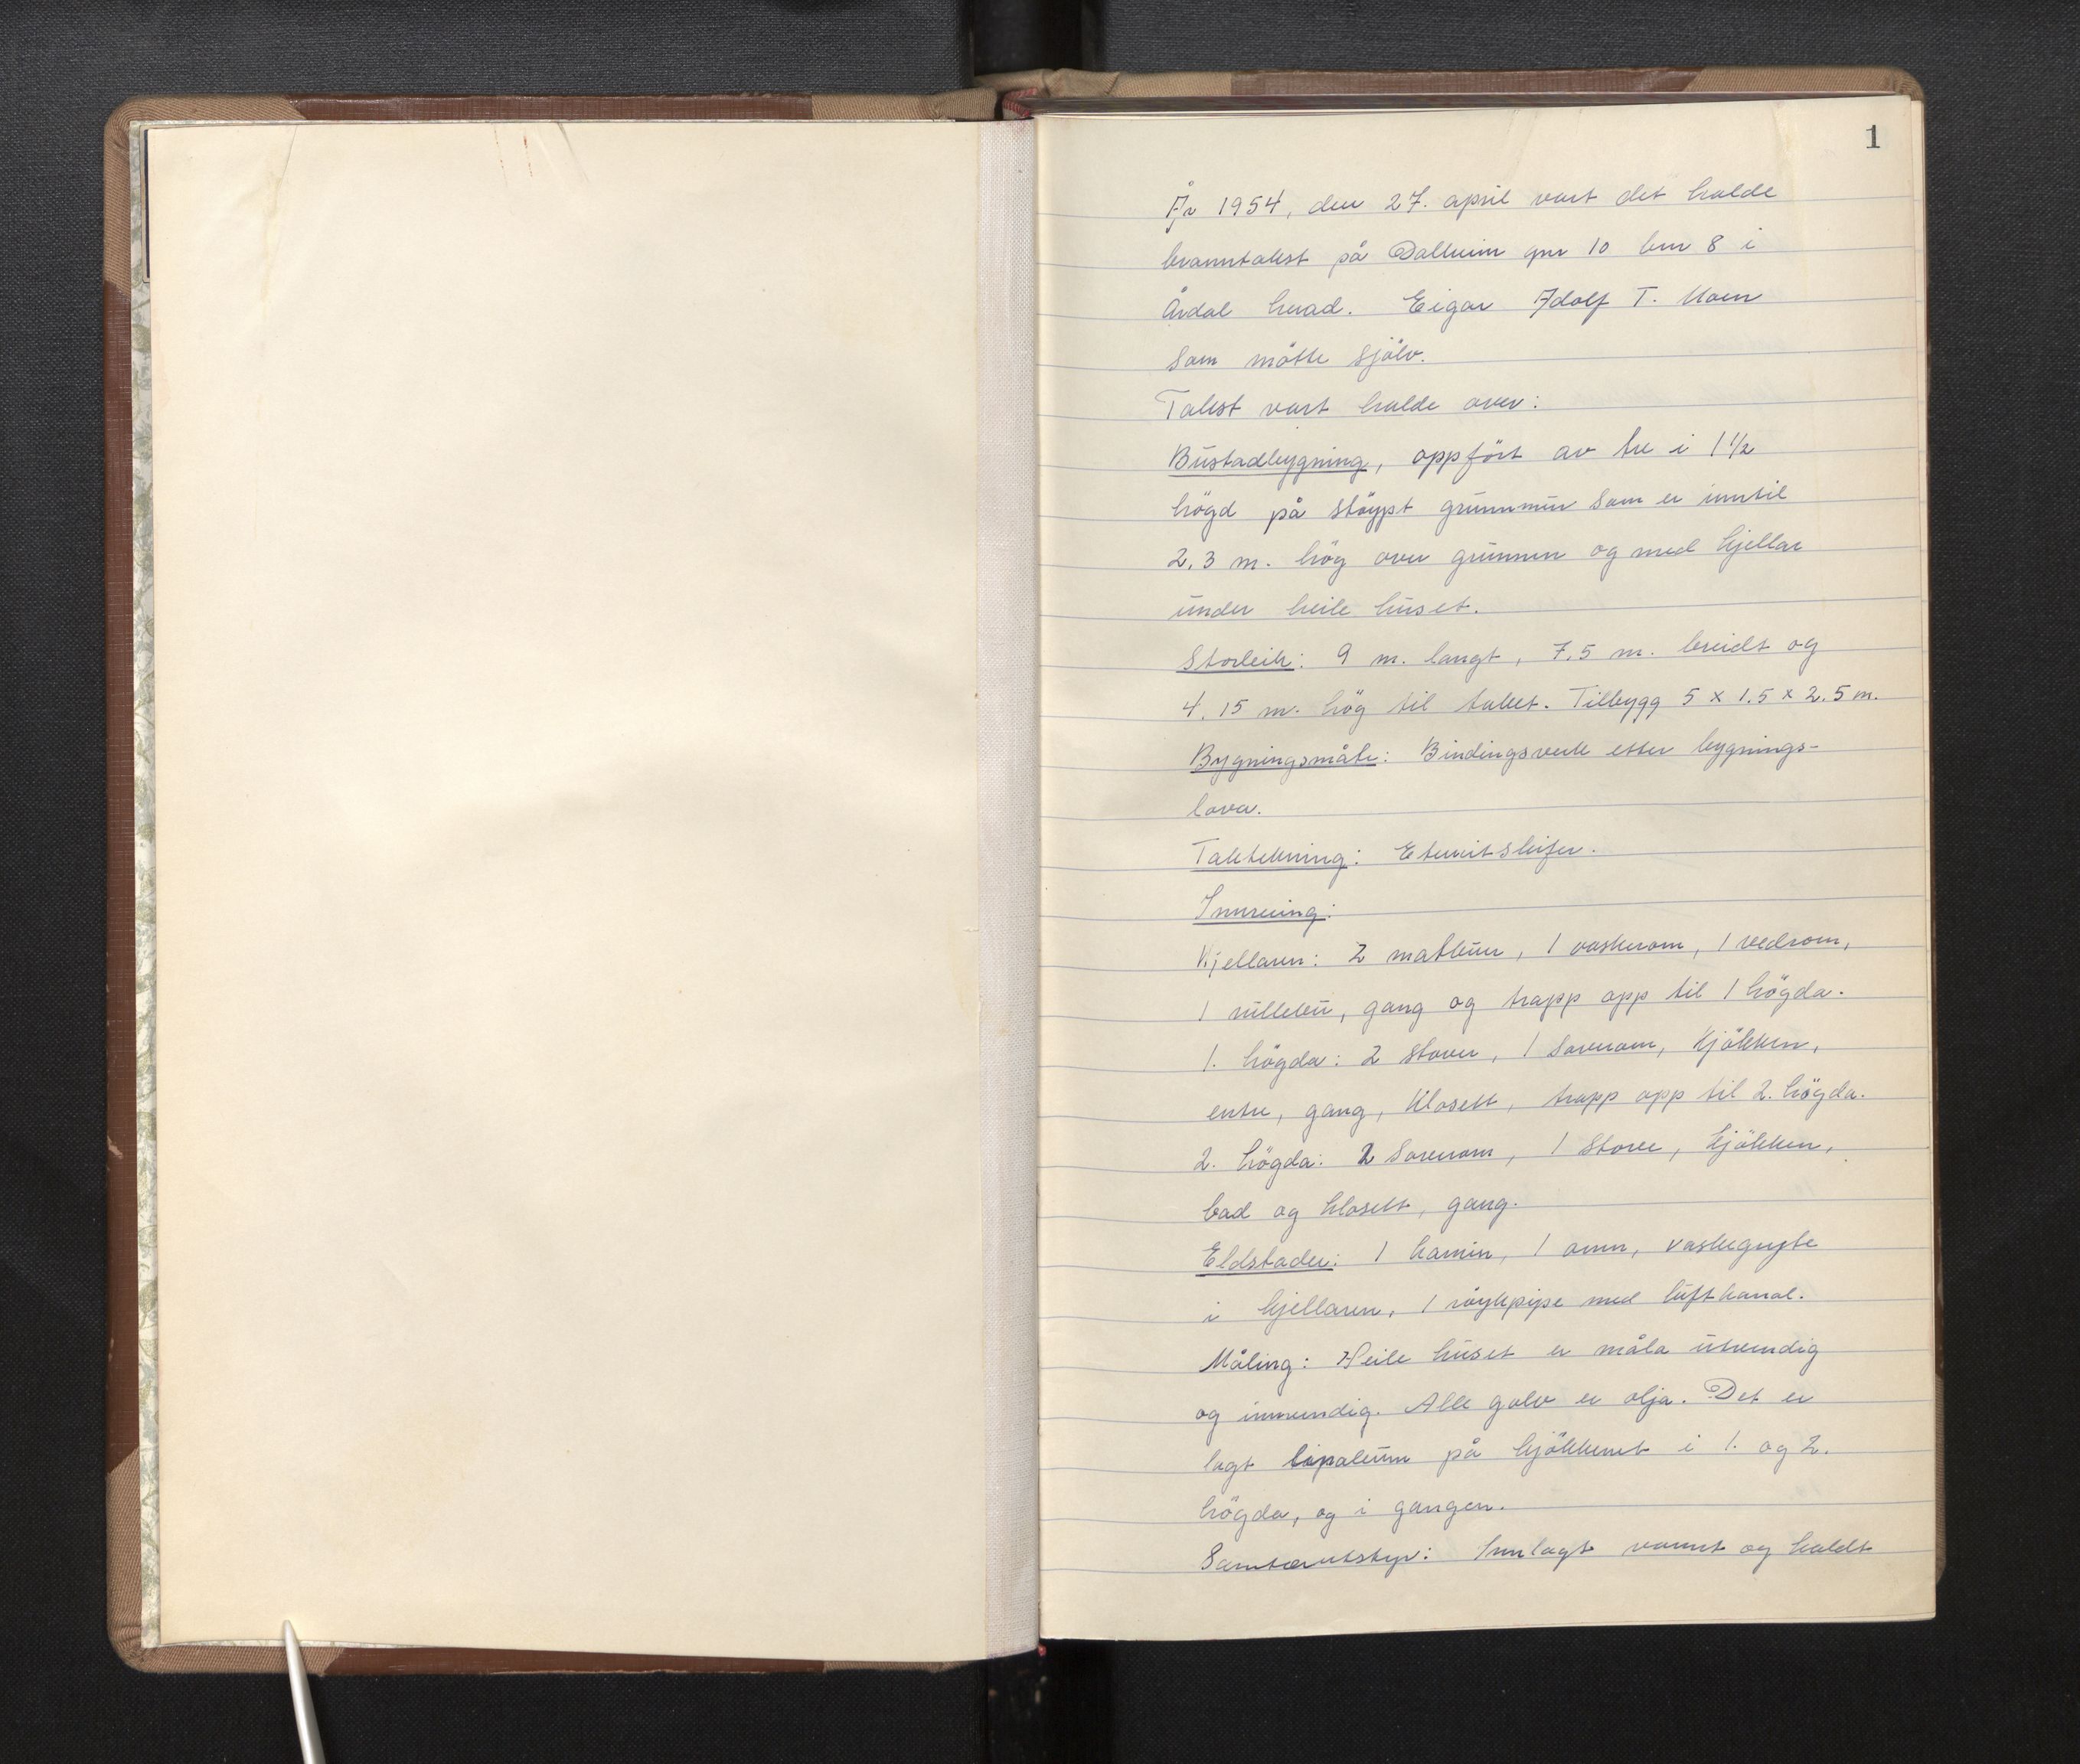 1
År 1954, den 27. april vart det halde
branntakst på Dalheim gnr 10 bnr 8 i
Årdal herad. Eigar Adolf T. Moen
som møtte sjølv.
Takst vart halde over:
Bustadbygning, oppfört av tre i 1 1/2
högd på stöypt grunnmur som er inntil
2,3 m. hög over grunnen og med kjellar
under heile huset.
Storleik: 9 m. langt, 7,5 m. breidt og
4.15 m. hög til taket. Tilbygg 5 x 1.5 x 2.5 m.
Bygningsmåte: Bindingsverk etter bygnings-
lova.
Taktekning: Eternitskifer.
Innreiing:
Kjellaren: 2 matbuer, 1 vaskerom, 1 vedrom,
1 rullebu, gang og trapp opp til 1 högda.
1. högda: 2 stover, 1 soverom, kjökken,
entre, gang, klosett, trapp opp til 2. högda.
2. högda: 2 soverom, 1 stove, kjökken,
bad og klosett, gang.
Eldstader: 1 kamin, 1 omn, vaskegryte
i kjellaren, 1 röykpipe med luftkanal.
Måling: Heile huset er måla utvendig
og innvendig. Alle golv er olja. Det er
lagt linoleum på kjökkenet i 1. og 2.
högda, og i gangen.
Sanitærutstyr: Innlagt varmt og kaldt